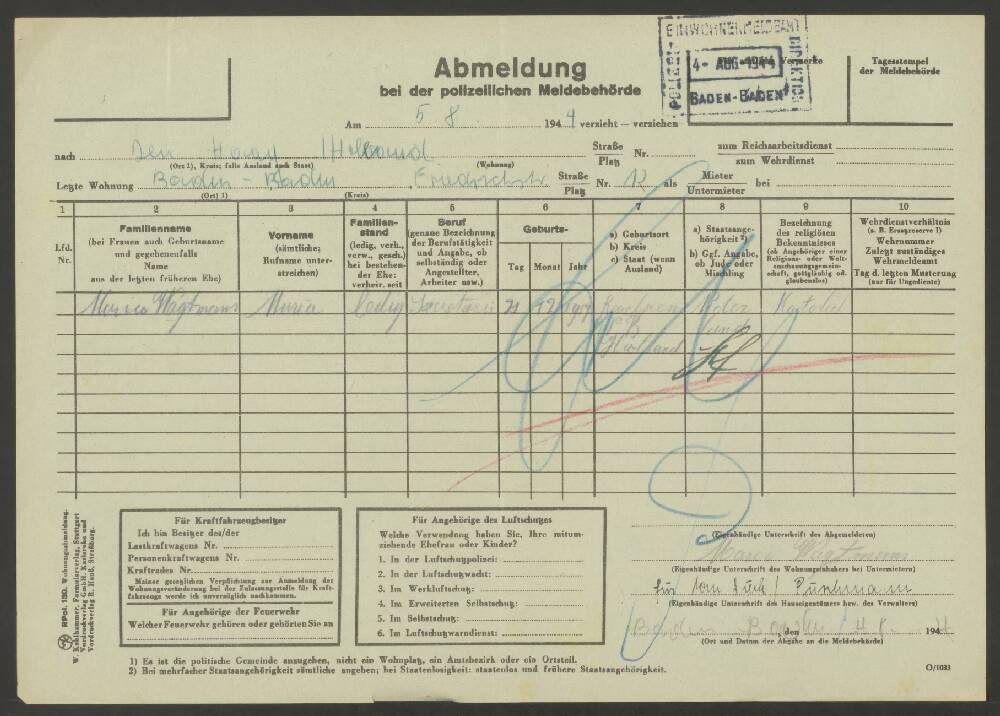 EINWOHNERMELDEAMT
POLIZEI-
DIREKTION
4- AUG 1944
BADEN-BADEN
Abmeldung
bei der polizeilichen Meldebehörde
Tagesstempel
der Meldebehörde
Am 5. 8. 1944 verzieht — verziehen
nach Den Haag / Holland Straße Platz Nr. zum Reichsarbeitsdienst
zum Wehrdienst
(Ort 1), Kreis; falls Ausland auch Staat) (Wohnung)
Letzte Wohnung Baden-Baden, Friedrichstr Straße Platz Nr. 12 als Mieter Untermieter bei
(Ort) 1) (Kreis)
1 2 3 4 5 6 7 8 9 10
Lfd. Nr.
Familienname
(bei Frauen auch Geburtsname
und gegebenenfalls
Name
aus der letzten früheren Ehe)
Vorname
(sämtliche;
Rufname unter-
streichen)
Familien-
stand
(ledig, verh.,
verw., gesch.)
bei bestehen-
der Ehe:
verheir. seit
Beruf
(genaue Bezeichnung
der Berufstätigkeit
und Angabe, ob
selbständig oder
Angestellter,
Arbeiter usw.)
Geburts-
Tag Monat Jahr
a) Geburtsort
b) Kreis
c) Staat (wenn
Ausland)
a) Staatsange-
hörigkeit 2)
b) Ggf. Angabe,
ob Jude oder
Mischling
Bezeichnung
des religiösen
Bekenntnisses
(ob Angehöriger einer
Religions- oder Welt-
anschauungsgemein-
schaft, gottgläubig od.
glaubenslos)
Wehrdienstverhältnis
(z. B. Ersatzreserve I)
Wehrnummer
Zuletzt zuständiges
Wehrmeldeamt
Tag d. letzten Musterung
(nur für Ungediente)
Maria Wagtmans Maria ledig 12
Für Kraftfahrzeugbesitzer
Ich bin Besitzer des/der
Lastkraftwagens Nr.
Personenkraftwagens Nr.
Kraftrades Nr.
Meiner gesetzlichen Verpflichtung zur Anmeldung der
Wohnungsveränderung bei der Zulassungsstelle für Kraft-
fahrzeuge werde ich unverzüglich nachkommen.
Für Angehörige der Feuerwehr
Welcher Feuerwehr gehören oder gehörten Sie an
Für Angehörige des Luftschutzes
Welche Verwendung haben Sie, Ihre mitum-
ziehende Ehefrau oder Kinder?
1. In der Luftschutzpolizei:
2. In der Luftschutzwacht:
3. Im Werkluftschutz:
4. Im Erweiterten Selbstschutz:
5. Im Selbstschutz:
6. Im Luftschutzwarndienst:
(Eigenhändige Unterschrift des Abgemeldeten)
(Eigenhändige Unterschrift des Wohnungsinhabers bei Untermietern)
(Eigenhändige Unterschrift des Hauseigentümers bzw. des Verwalters)
Baden-Baden, den 4. 8. 1944
(Ort und Datum der Abgabe an die Meldebehörde)
RPol. 15O. Wohnungsabmeldung.
W. Kohlhammer, Formularverlag, Stuttgart
1) Es ist die politische Gemeinde anzugeben, nicht ein Wohnplatz, ein Amtsbezirk oder ein Ortsteil.
2) Bei mehrfacher Staatsangehörigkeit sämtliche angeben; bei Staatenlosigkeit: staatenlos und frühere Staatsangehörigkeit.
O/1033